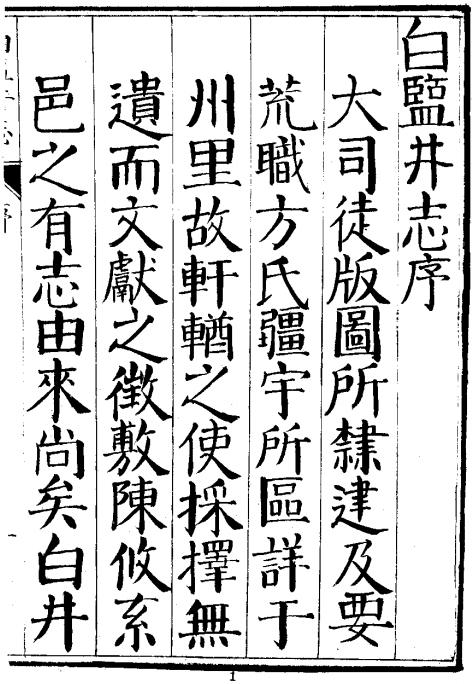 白鹽井志序
大司徒版圖所隸逮及要
荒職方氏疆宇所區詳于
州里故軒輶之使採擇無
遺而文獻之徵敷陳攸系
邑之有志由來尚矣白井
1